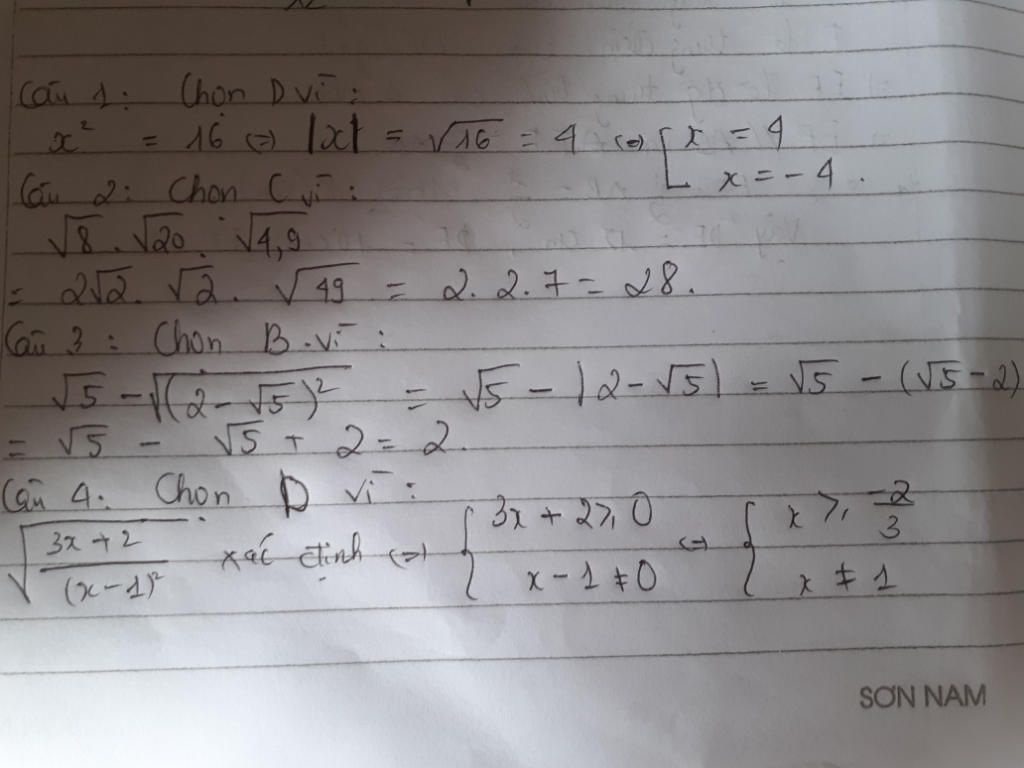 Câu 1: Chọn D vì:
x² = 16 ⇔ |x| = √16 = 4 ⇔ [ x = 4
x = -4.
Câu 2: Chọn C vì:
√8 . √20 . √4,9
= 2√2 . √2 . √49 = 2. 2. 7 = 28.
Câu 3: Chọn B. vì:
√5 - √(2 - √5)² = √5 - |2 - √5| = √5 - (√5 - 2)
= √5 - √5 + 2 = 2.
Câu 4: Chọn D vì:
√((3x + 2)/(x - 1)²) xác định ⇔ { 3x + 2 ≥ 0 ⇔ { x ≥ -2/3
x - 1 ≠ 0 x ≠ 1
SƠN NAM